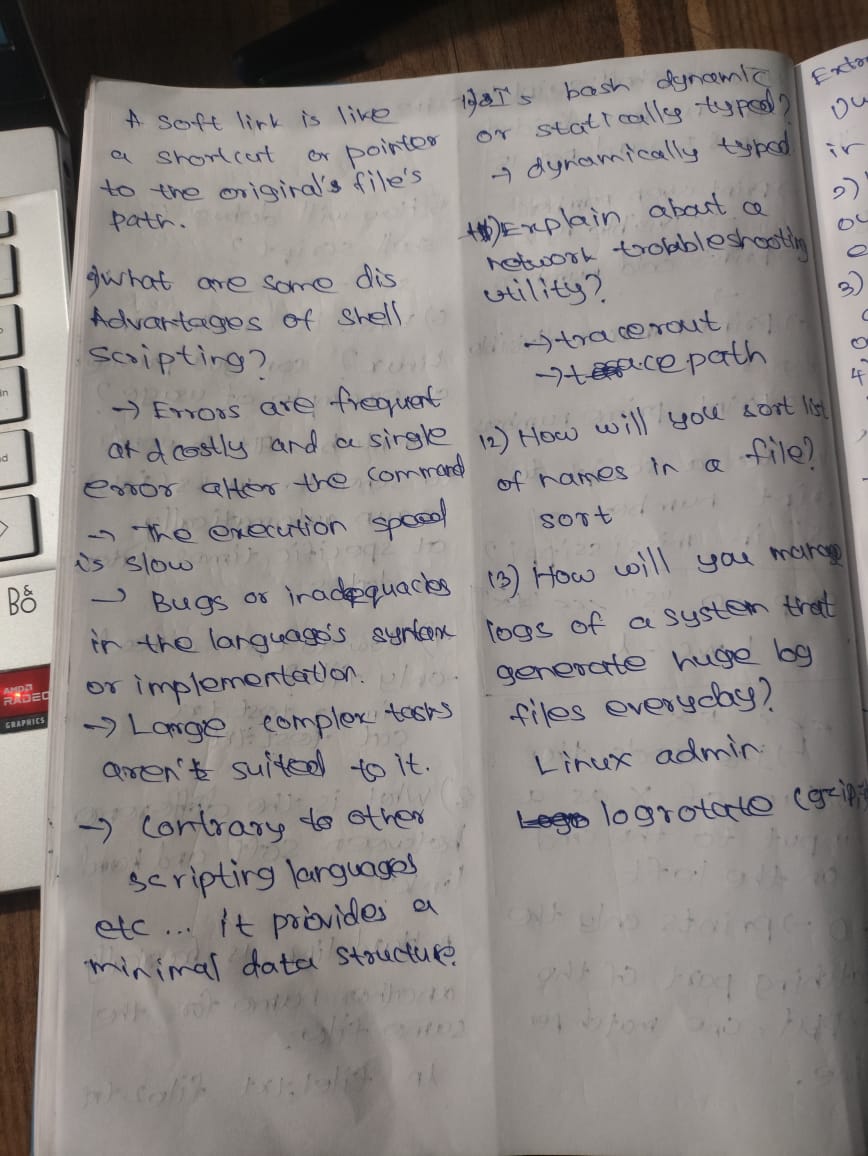 A soft link is like
a shortcut or pointer
to the original's file's
path.
9)what are some dis
Advantages of shell
scripting?
→ Errors are frequent
and costly and a single
error alter the command
→ The execution speed
is slow
→ Bugs or inadequacies
in the language's syntax
or implementation.
→ Large complex tasks
aren't suited to it.
→ Contrary to other
scripting languages
etc... it provides a
minimal data structure.
Is bash dynamic
or statically typed?
→ dynamically typed
11) Explain about a
network trobbleshooting
utility?
→ tracerout
→ tracepath
12) How will you sort list
of names in a file?
sort
13) How will you manage
logs of a system that
generate huge log
files everyday?
Linux admin
logrotate (gzip
Extra
ou
in
2)
ou
e
3)
4
B&O
AMD
RADEO
GRAPHICS